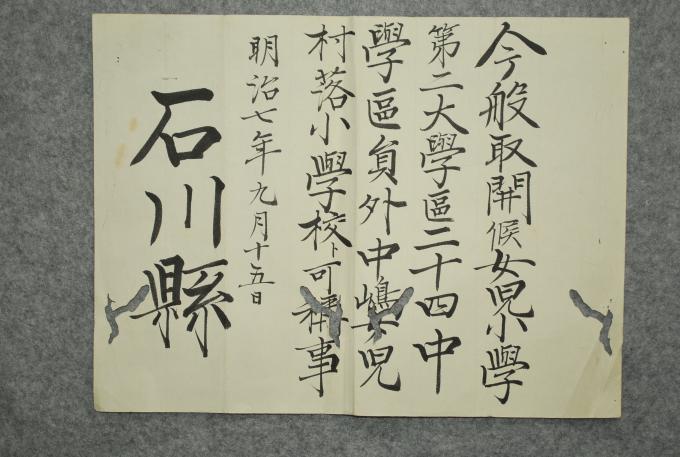 今般取開候女児小學
第二大學區二十四中
學區員外中嶋女児
村落小學校ト可稱事
明治七年九月十五日
石川縣